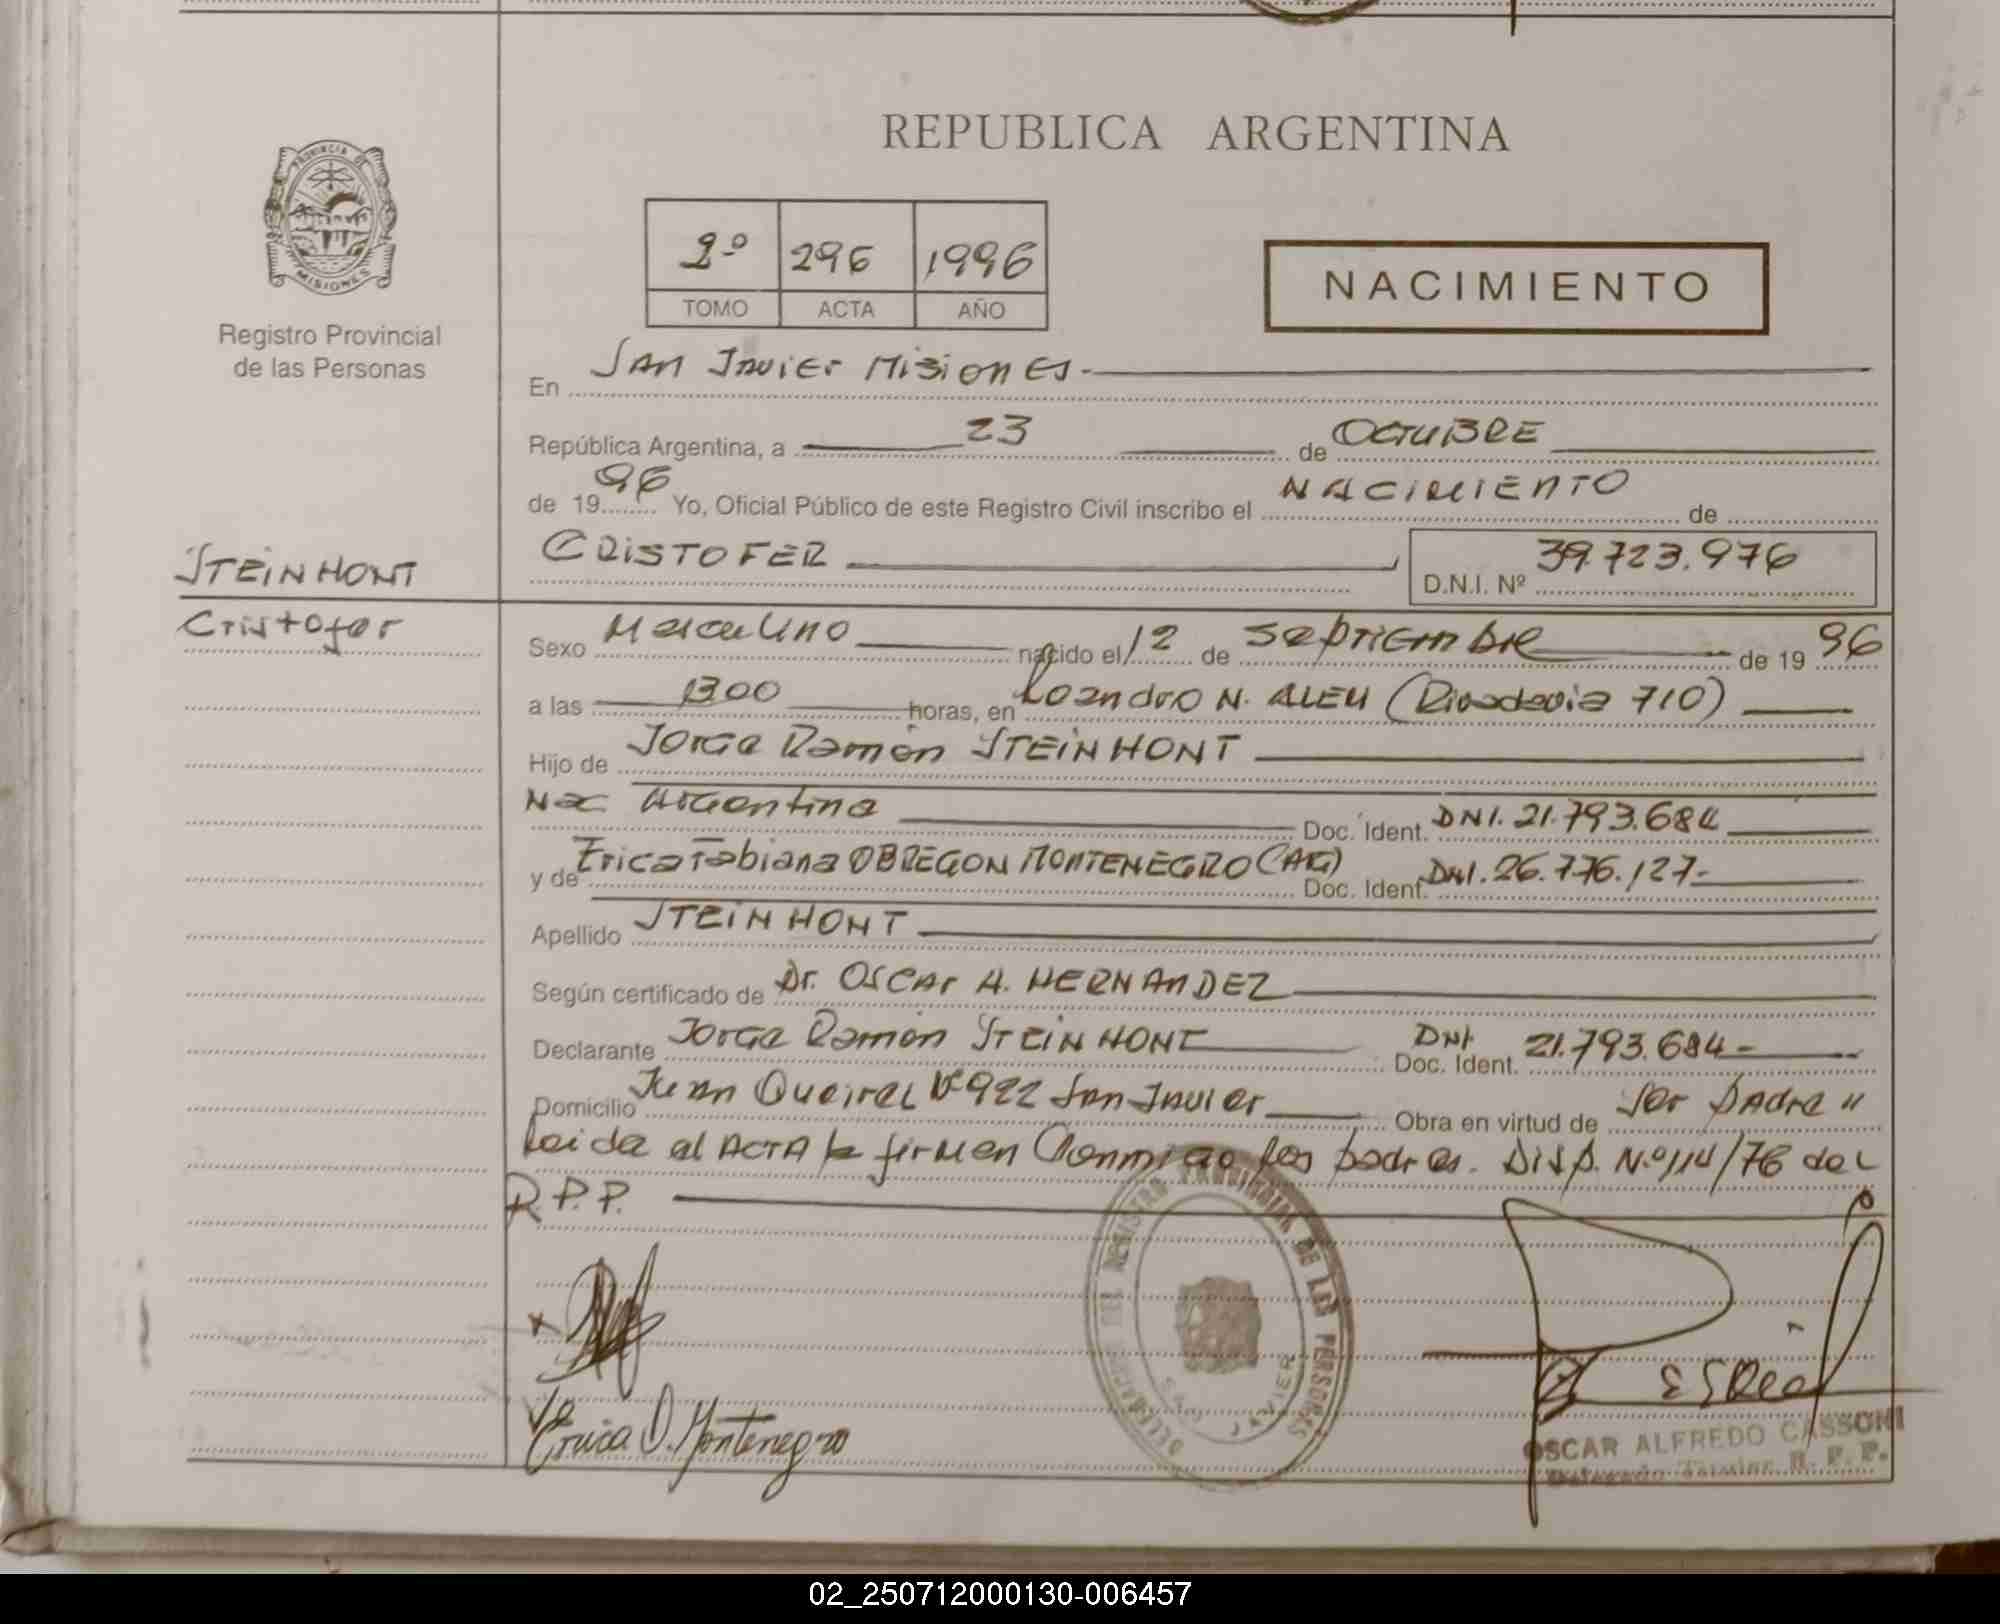 REPUBLICA ARGENTINA
PROVINCIA DE
MISIONES
Registro Provincial
de las Personas
2º 296 1996
TOMO ACTA AÑO
NACIMIENTO
En San Javier Misiones.-
República Argentina, a 23 de OCTUBRE
de 1996 Yo, Oficial Público de este Registro Civil inscribo el NACIMIENTO de
CRISTOFER
D.N.I. Nº 39.723.976
STEINHONT
Cristofer
Sexo Masculino nacido el 12 de Septiembre de 19 96
a las 1300 horas, en Leandro N. ALEM (Rivadavia 710)
Hijo de Jorge Ramón STEINHONT
Nac Argentina Doc. Ident. DNI. 21.793.684
y de Erica Fabiana OBREGON MONTENEGRO (AG) Doc. Ident. DNI. 26.776.127-
Apellido STEINHONT
Según certificado de Dr. OSCAR A. HERNANDEZ
Declarante Jorge Ramón STEINHONT Doc. Ident. DNI 21.793.684-
Domicilio Juan Queirel Nº 922 San Javier Obra en virtud de Ser padre "
Leida el ACTA la firman Conmigo los padres. DISP. Nº 114/76 del
R.P.P.
DELEGACION DEL REGISTRO PROVINCIAL DE LAS PERSONAS
SAN JAVIER
Erica O. Montenegro
OSCAR ALFREDO CASSONI
Delegado Titular R. P. P.
02_250712000130-006457